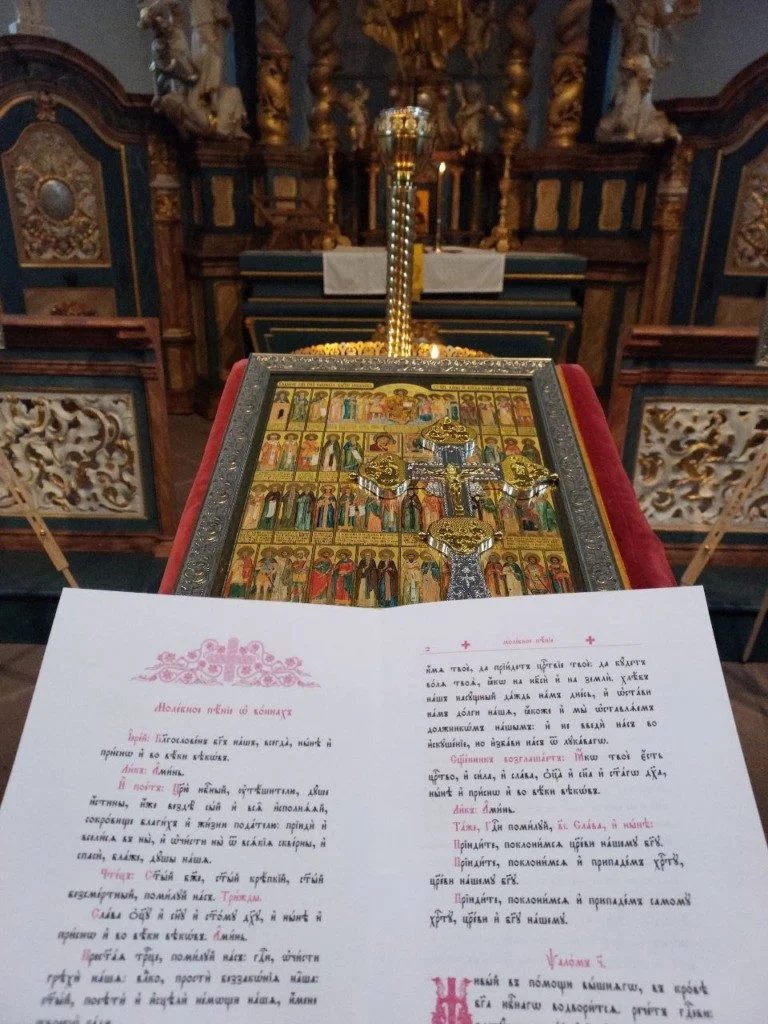 Моле́бное пѣ́нїе ѡ҆ во́инахъ
І҆ере́й: Бл҃гослове́нъ бг҃ъ на́шъ, всегда̀, ны́нѣ и҆
при́снѡ и҆ во вѣ́ки вѣкѡ́въ.
Ли́къ: А҆ми́нь.
И҆ пою́тъ: Цр҃ю̀ нбⷭ҇ный, ᲂу҆тѣ́шителю, дш҃е
и҆́стины, и҆́же вездѣ̀ сы́й и҆ всѧ̑ и҆сполнѧ́ѧй,
сокро́вище благи́хъ и҆ жи́зни пода́телю: прїидѝ и҆
всели́сѧ въ ны̀, и҆ ѡ҆чи́сти ны̀ ѿ всѧ́кїѧ скве́рны, и҆
спасѝ, бл҃же, дꙋ́шы на́шѧ.
Чте́цъ: Ст҃ы́й бж҃е, ст҃ы́й крѣ́пкїй, ст҃ы́й
безсме́ртный, поми́лꙋй на́съ. Три́жды.
Сла́ва ѻ҆ц҃ꙋ̀ и҆ сн҃ꙋ и҆ ст҃о́мꙋ дх҃ꙋ, и҆ ны́нѣ и҆
при́снѡ и҆ во вѣ́ки вѣкѡ́въ. А҆ми́нь.
Прест҃а́ѧ трⷪ҇це, поми́лꙋй на́съ: гдⷭ҇и, ѡ҆чи́сти
грѣхѝ на́шѧ: влⷣко, простѝ беззакѡ́нїѧ на̑ша:
ст҃ы́й, посѣтѝ и҆ и҆сцѣлѝ не́мѡщи на́шѧ, и҆́мене
твоегѡ̀ ра́ди.
2 Моле́бное пѣ́нїе
и҆́мѧ твоѐ, да прїи́детъ црⷭ҇твїе твоѐ: да бꙋ́детъ
во́лѧ твоѧ̀, ꙗ҆́кѡ на нб҃сѝ и҆ на землѝ. хлѣ́бъ
на́шъ насꙋ́щный да́ждь на́мъ дне́сь, и҆ ѡ҆ста́ви
на́мъ до́лги на́шѧ, ꙗ҆́коже и҆ мы̀ ѡ҆ставлѧ́емъ
должникѡ́мъ на́шымъ: и҆ не введѝ на́съ во
и҆скꙋше́нїе, но и҆зба́ви на́съ ѿ лꙋка́вагѡ.
Сщ҃е́нникъ возглаша́етъ: Ꙗ҆́кѡ твоѐ є҆́сть
црⷭ҇тво, и҆ си́ла, и҆ сла́ва, ѻ҆ц҃а̀ и҆ сн҃а и҆ ст҃а́гѡ дх҃а,
ны́нѣ и҆ при́снѡ и҆ во вѣ́ки вѣкѡ́въ.
Ли́къ: А҆ми́нь.
Та́же, Гдⷭ҇и поми́лꙋй, в҃і. Сла́ва, и҆ ны́нѣ:
Прїиди́те, поклони́мсѧ цр҃е́ви на́шемꙋ бг҃ꙋ.
Прїиди́те, поклони́мсѧ и҆ припаде́мъ хрⷭ҇тꙋ̀,
цр҃е́ви на́шемꙋ бг҃ꙋ.
Прїиди́те, поклони́мсѧ и҆ припаде́мъ самомꙋ̀
хрⷭ҇тꙋ̀, цр҃е́ви и҆ бг҃ꙋ на́шемꙋ.
Ѱало́мъ ч҃.
Живы́й въ по́мощи вы́шнѧгѡ, въ кро́вѣ
бг҃а нбⷭ҇нагѡ водвори́тсѧ. рече́тъ гдⷭ҇еви: